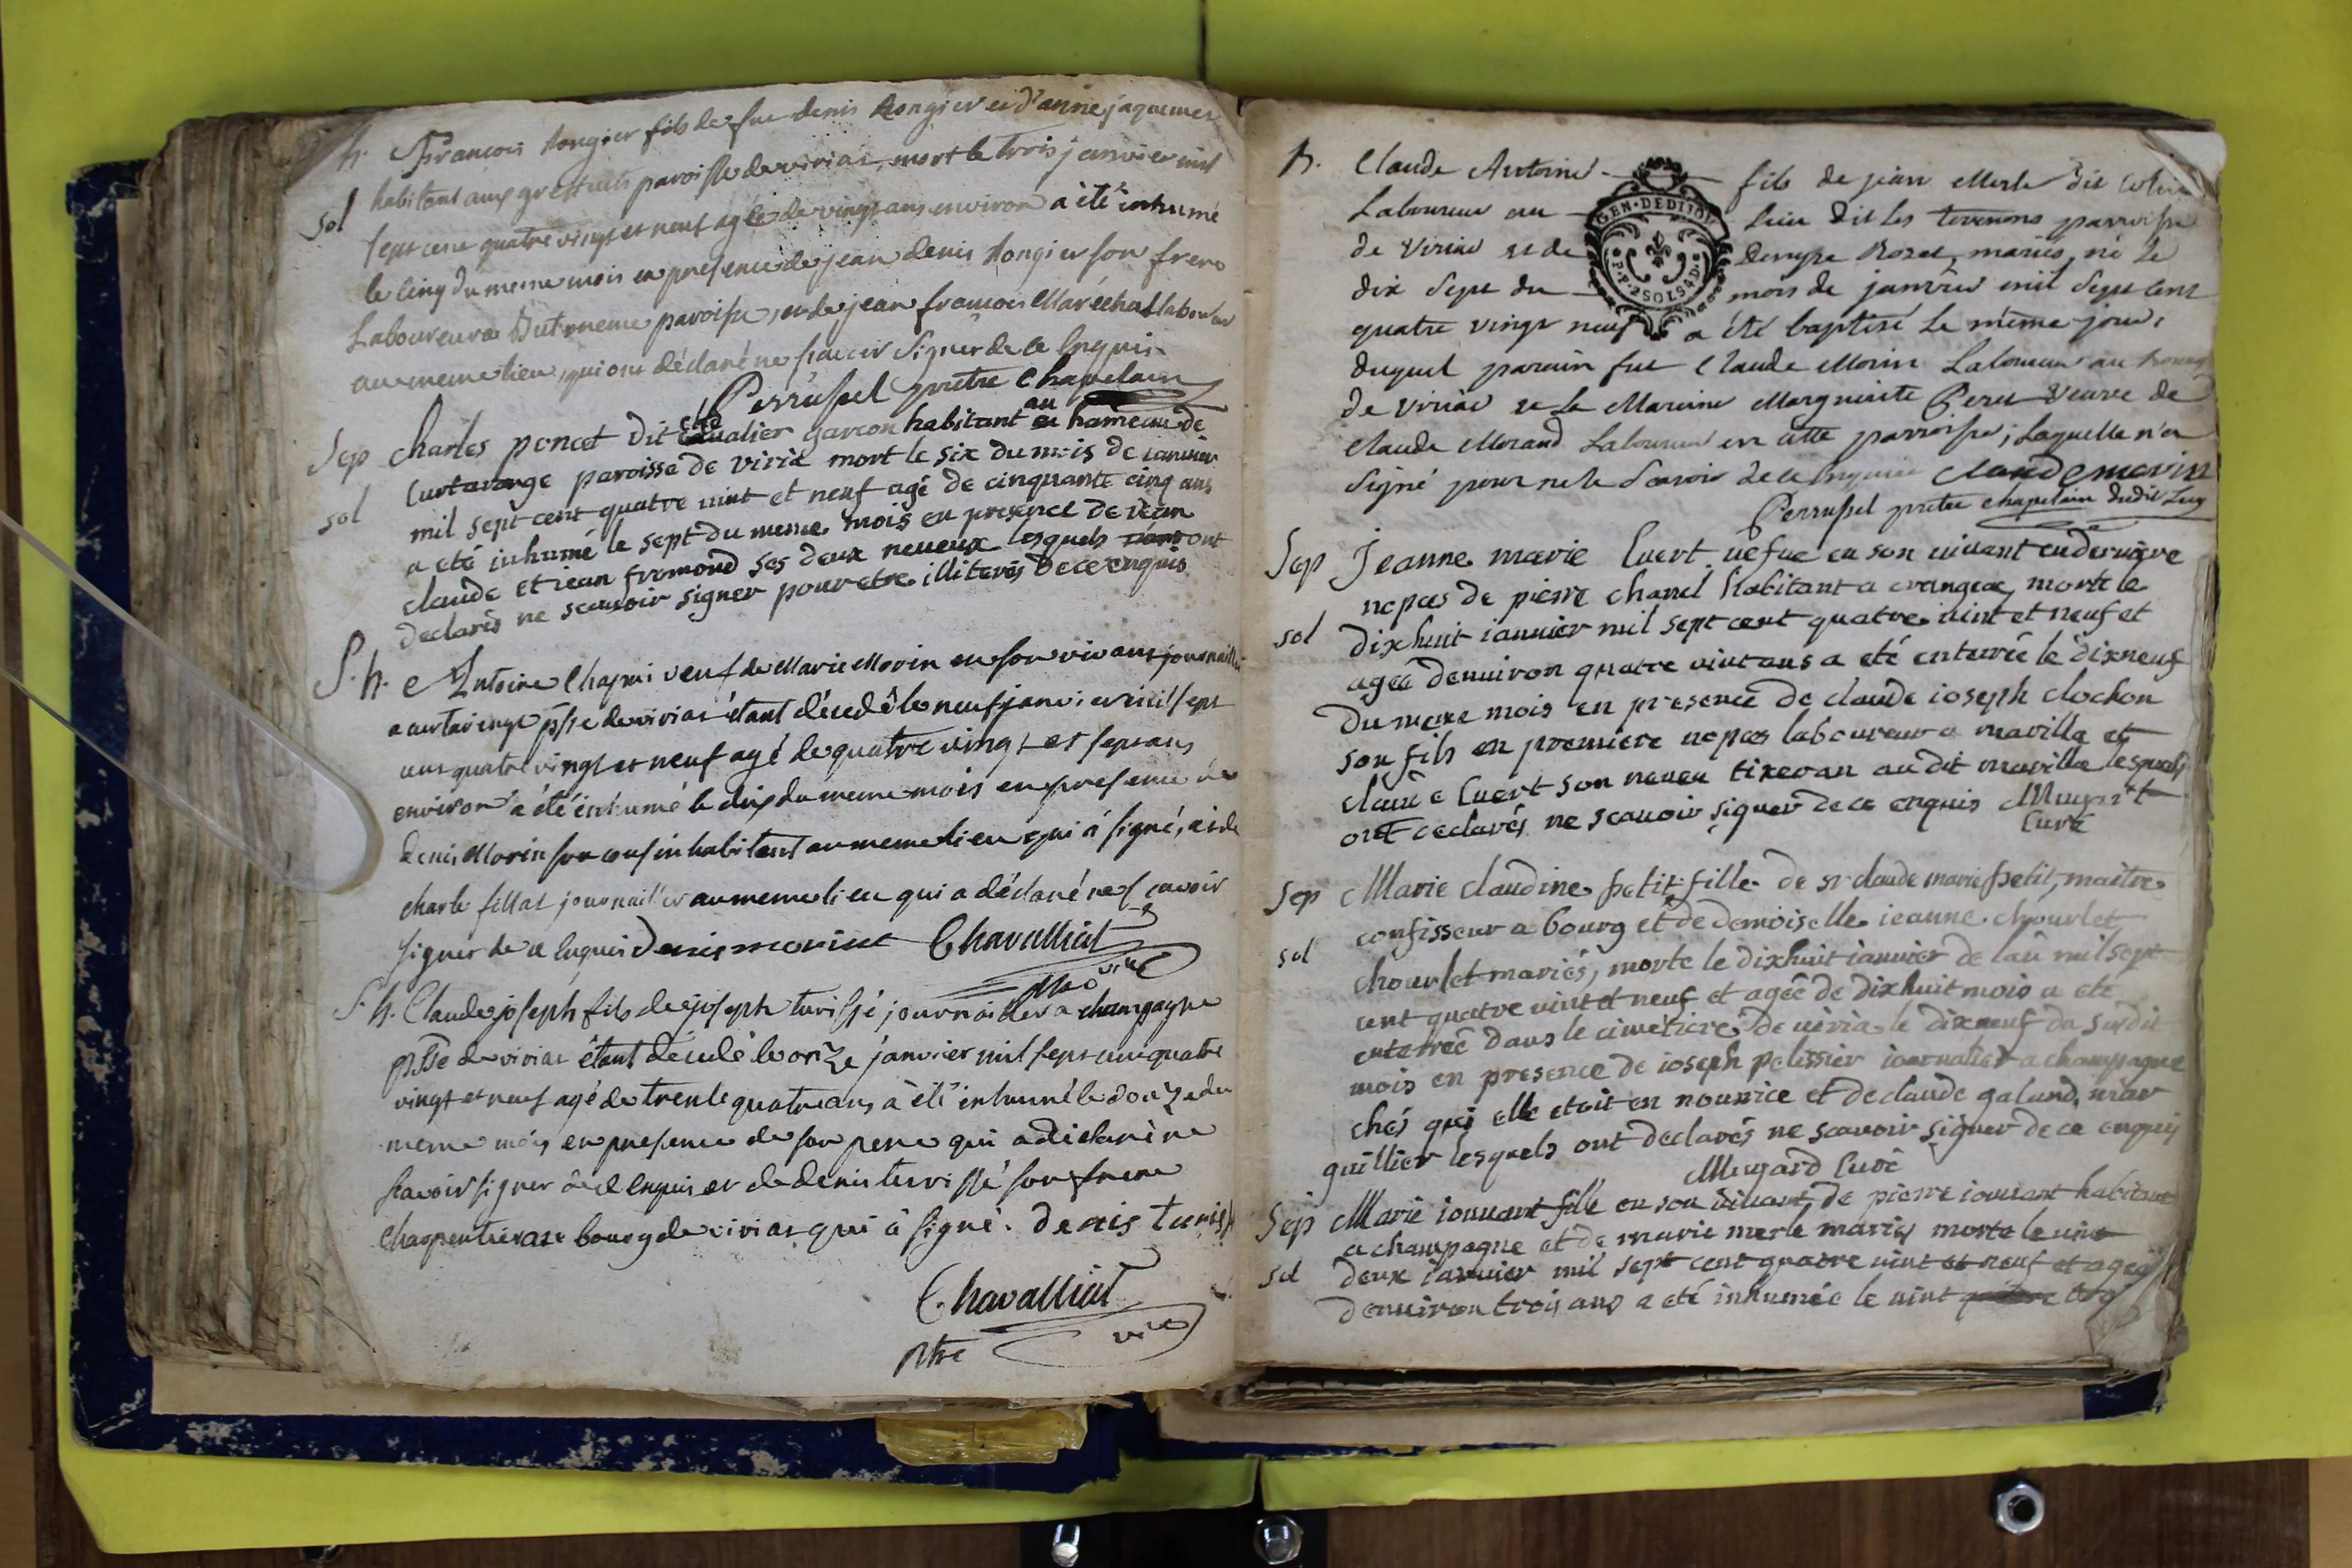 h. françois Rongier fils de feu denis Rongier et d'anne jaquemet
habitant aux paroisse de viriat, mort le trois janvier mil
sol
sept cent quatre vingt et neuf agé de vingt ans environ a été inhumé
le cinq du meme mois en presence de jean denis Rongier son frere
Laboureur dud. meme paroisse, et de jean francois Maréchal laboureur
au meme lieu, qui ont déclaré ne scavoir signer de ce enquis
Perrusel pretre Chapelain
Sep charles poncet dit chevalier garcon habitant au hameau de
Curtarange paroisse de viria mort le six du mois de ianvier
sol
mil sept cent quatre vint et neuf agé de cinquante cinq ans
a eté inhumé le sept du meme mois en presence de iean
claude et iean fromond ses deux neveux lesquels ont
declarés ne scauoir signer pour etre illiterés de ce enquis
S. h. Antoine Chapui veuf de Marie Morin en son vivant journailler
a curtaringe psse de viriat étant décedé le neuf janvier mil sept
cent quatre vingt et neuf agé de quatre vingt et sept ans
environ a été inhumé le dix du meme mois en presence de
denis Morin son cousin habitant au meme lieu qui a signé, et de
charle fillat journailler au meme lieu qui a déclaré ne scavoir
signer de ce enquis denis morin Chavalliat
vic
S. h. Claude joseph fils de joseph turissé journailier a champagne
psse de viriat étant décedé le onze janvier mil sept cent quatre
vingt et neuf agé de trente quatre ans, à été inhumé le douze du
meme mois en presence de son pere qui a déclaré ne
scavoir signer de ce enquis et de denis terrissé son frere
charpentier au bourg de viriat qui à signé. denis turissé
Chavalliat
ptre vic
h. Claude Antoine fils de jean Merle dit
Laboureur au lieu dit les terenons parroisse
de Viriat et de Rozet, mariés, né le
dix sept du mois de janvier mil sept cent
quatre vingt neuf a été baptisé le même jour,
GEN. DE DIJON
P.P. 2 SOLS 4 D.
duquel parain fut Claude Morin Laboureur au bourg
de Viriat et la Maraine Marguerite Peret veuve de
Claude Morand Laboureur en cette parroisse; laquelle n'a
signé pour ne le scavoir de ce enquise Claude morin
Perrusel pretre chapelain dudit Lieu
Sep Jeanne marie Cuert vefue en son viuant en derniere
nopces de pierre chanel habitant a crangeac, morte le
sol
dixhuit ianuier mil sept cent quatre vint et neuf et
agée denuiron quatre vint ans a eté enterrée le dixneuf
du meme mois en presence de claude ioseph clochon
son fils en premiere nopces laboureur a mavilla et
claude Cuert son neueu tixeran au dit mavilla lesquels
ont declarés ne scauoir signer de ce enquis Mugard
Curé
Sep Marie claudine petit fille de sr claude marie petit, maitre
confisseur a bourg et de demoiselle ieanne chourlet
sol
chourlet mariés, morte le dixhuit ianuier de l'an mil sept
cent quatre vint et neuf et agée de dixhuit mois a ete
enterreé dans le cimétiere de viria le dixneuf du susdit
mois en presence de ioseph pelissier iournalier a champagne
ches qui elle etoit en nourrice et de claude galand, mar
guillier lesquels ont declarés ne scauoir signer de ce enquis
Mugard Curé
Sep Marie iouuant fille en son viuant, de pierre iouuant habitant
a champagne et de marie merle mariés morte le vint
sol
deux ianuier mil sept cent quatre vint et neuf et agée
denuiron trois ans a eté inhumée le vint